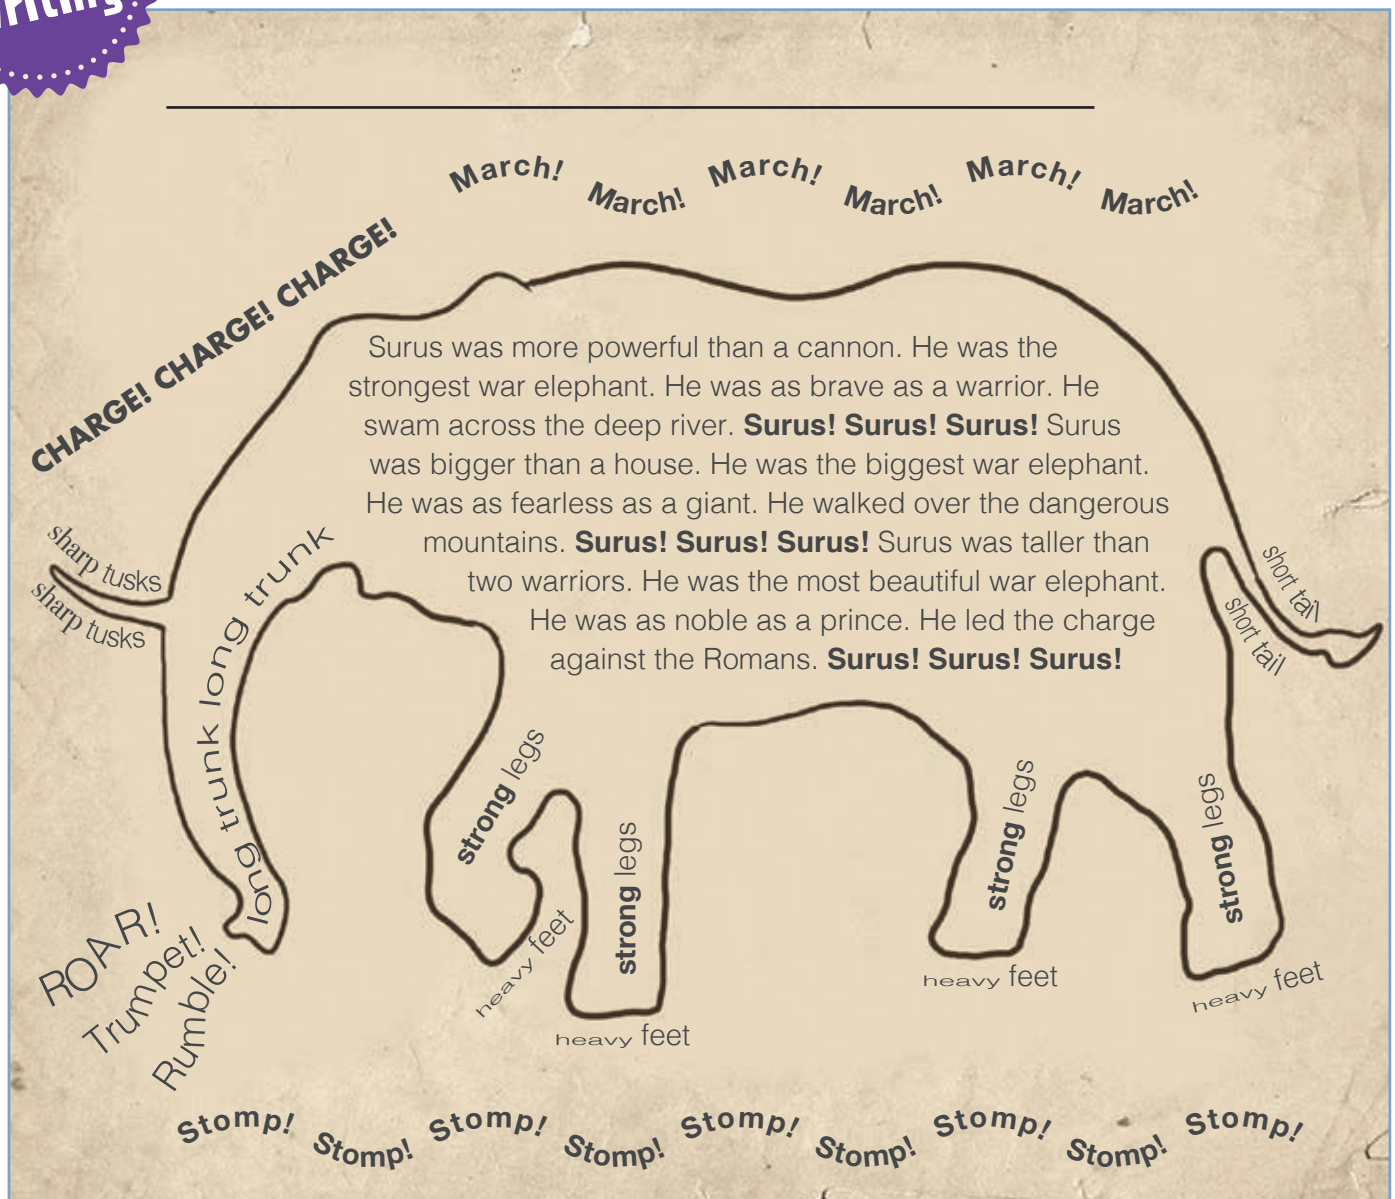 March! March! March! March! March! March!
CHARGE! CHARGE! CHARGE!
Surus was more powerful than a cannon. He was the
strongest war elephant. He was as brave as a warrior. He
swam across the deep river. Surus! Surus! Surus! Surus
was bigger than a house. He was the biggest war elephant.
He was as fearless as a giant. He walked over the dangerous
mountains. Surus! Surus! Surus! Surus was taller than
two warriors. He was the most beautiful war elephant.
He was as noble as a prince. He led the charge
against the Romans. Surus! Surus! Surus!
sharp tusks
sharp tusks
long trunk long trunk long trunk
short tail
short tail
strong legs
strong legs
strong legs
strong legs
heavy feet
heavy feet
heavy feet
heavy feet
ROAR!
Trumpet!
Rumble!
Stomp! Stomp! Stomp! Stomp! Stomp! Stomp! Stomp! Stomp! Stomp!